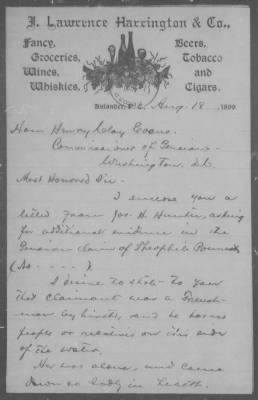 J. Lawrence Harrington & Co.,
Fancy Groceries, Wines, Whiskies,
Beers, Tobacco and Cigars.
Aulander, N.C., Aug 18 1899
Hon Henry Clay Evans.
Commissioner of Pensions
Washington D.C.
Most Honored Sir
I enclose you a
letter from Jos. H. Hunter, asking
for additional evidence in the
Pension claim of Theophile
(No. - - - -).
I desire to state to you
that claimant was a French-
man by birth, and he has no
people or relatives on this side
of the water.
He was alone, and came
down so badly in health.